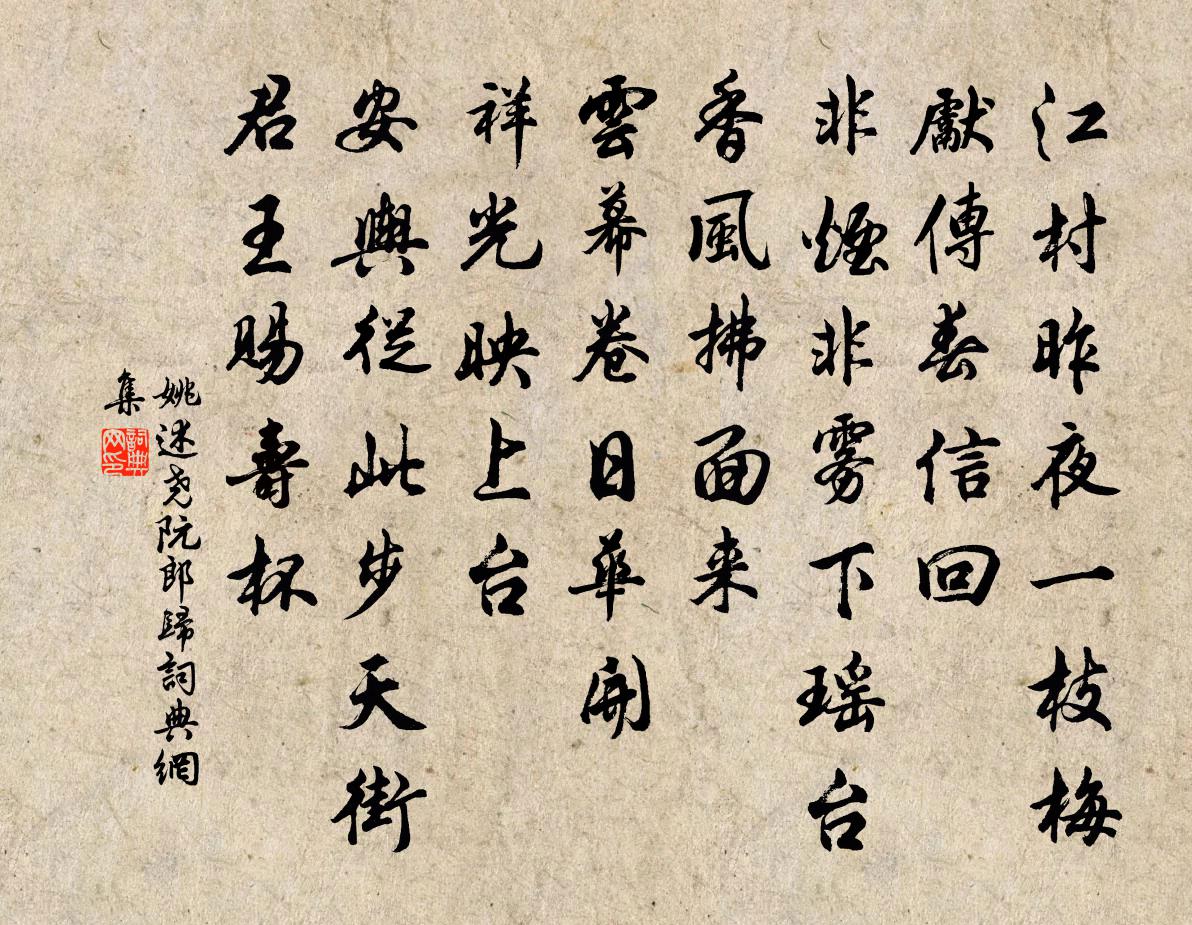 江村昨夜一枝梅
獻傳春信回
非煙非雾下瑶台
香風拂面来
雲幕卷日華開
祥光映上台
安輿從此步天街
君王賜壽杯
姚述尧阮郎歸詞典網
集
詞典网印